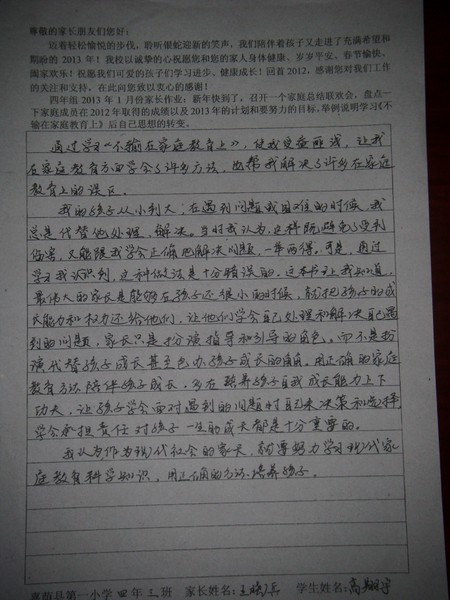 尊敬的家长朋友们您好:
迈着轻松愉悦的步伐,聆听银蛇迎新的笑声,我们陪伴着孩子又走进了充满希望和
期盼的2013年!我校以诚挚的心祝愿您和您的家人身体健康、岁岁平安、春节愉快、
阖家欢乐!祝愿我们可爱的孩子们学习进步、健康成长!回首2012,感谢您对我们工作
的关注和支持,在此向您致以衷心的感谢!
四年组2013年1月份家长作业:新年快到了,召开一个家庭总结联欢会,盘点一
下家庭成员在2012年取得的成绩以及2013年的计划和要努力的目标,举例说明学习《不
输在家庭教育上》后自己思想的转变。
通过学习《不输在家庭教育上》,使我受益匪浅,让我
在家庭教育方面学会了许多方法,也帮我解决了许多在家庭
教育上的误区。
我的孩子从小到大,在遇到问题或困难的时候,我
总是代替他处理、解决。当时我认为,这样既避免了受到
伤害,又能跟我学会正确地解决问题,一举两得。可是,通过
学习我认识到,这种做法是十分错误的。这本书让我知道,
最伟大的家长是能够在孩子还很小的时候,就把孩子的成
长能力和权力还给他们,让他们学会自己处理和解决自己遇
到的问题,家长只是扮演指导和引导的角色,而不是扮
演代替孩子成长甚至包办孩子成长的角角。用正确的家庭
教育方法陪伴孩子成长。多在培养孩子自我成长能力上下
功夫,让孩子学会面对遇到的问题时自己来决策和选择
学会承担责任对孩子一生的成长都是十分重要的。
我认为作为现代社会的家长,就要努力学习现代家
庭教育科学知识,用正确的方法培养孩子。
县第一小学四年三班 家长姓名: 学生姓名:高翔宇